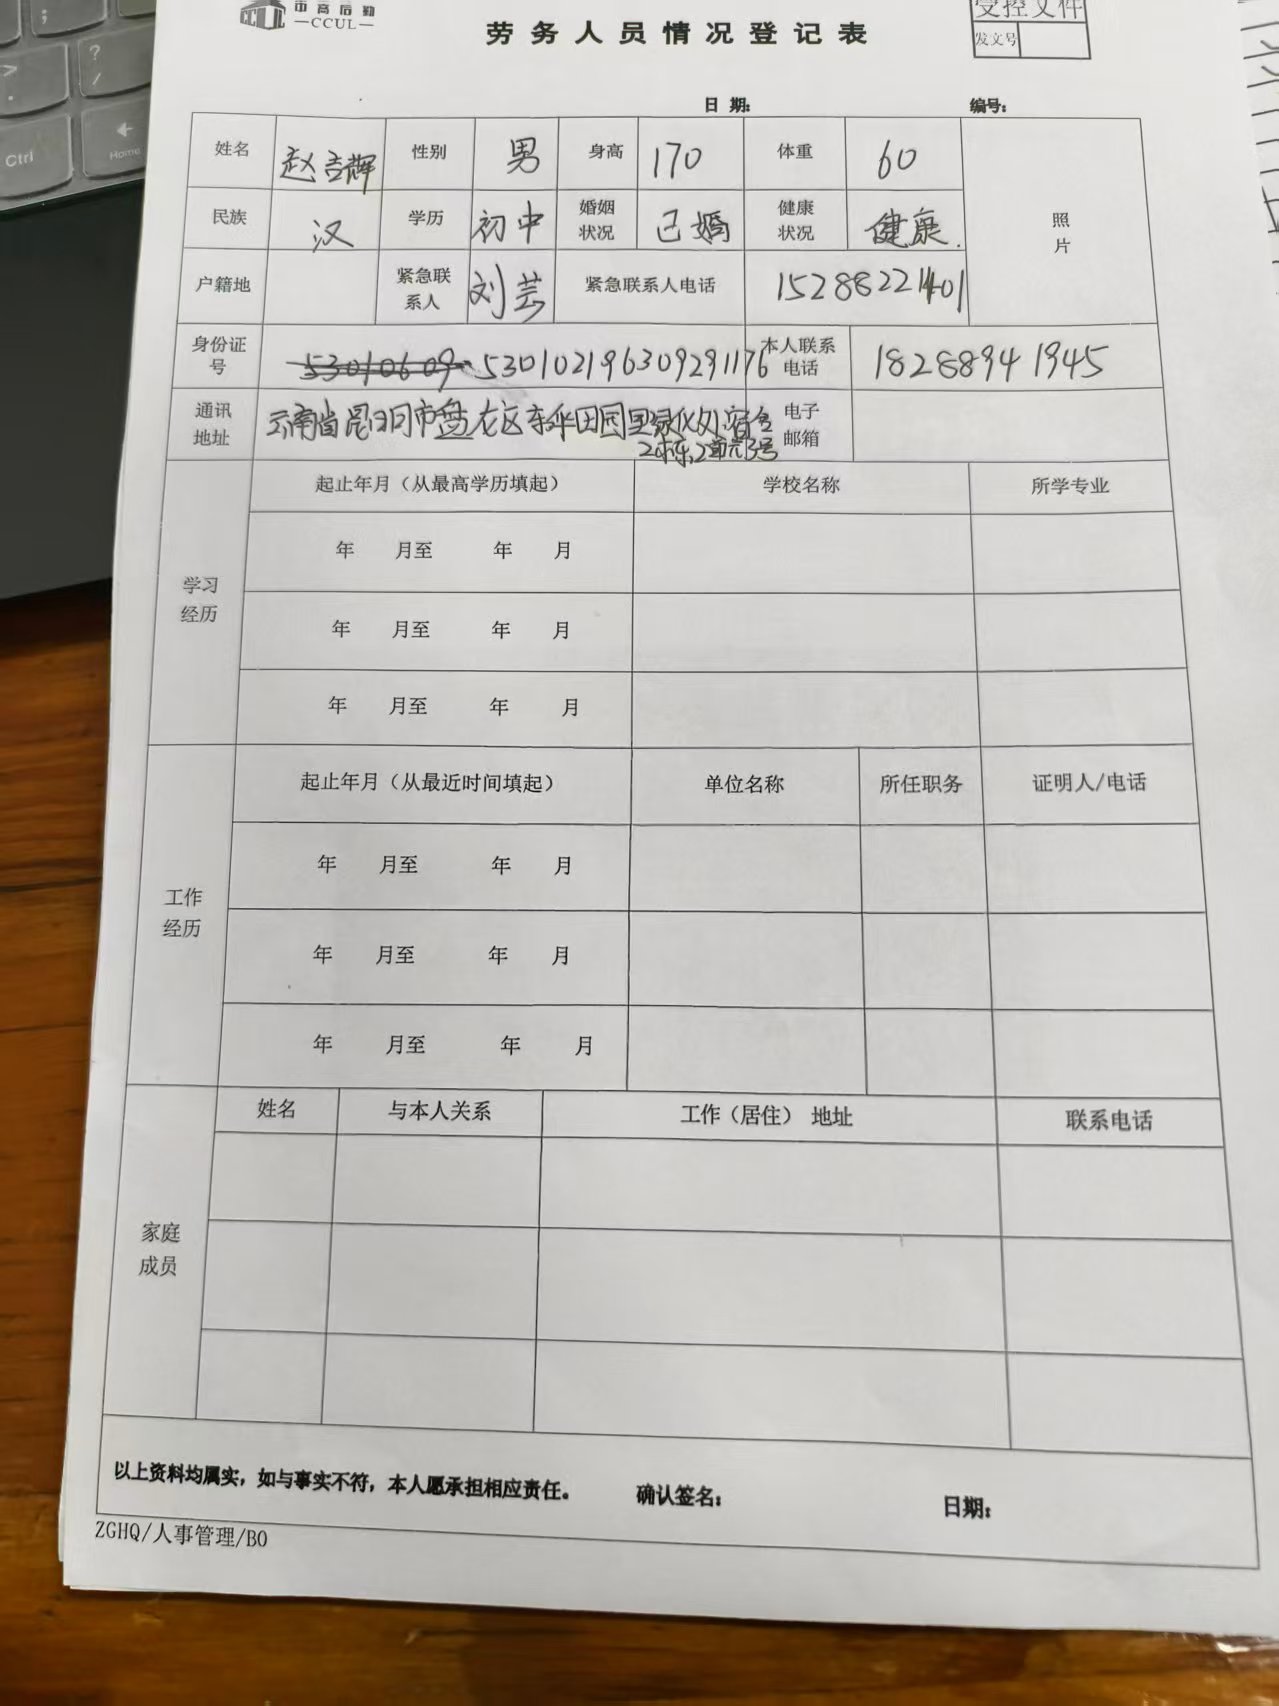 市高后勤
—CCUL—
受控文件
发文号
劳务人员情况登记表
日 期: 编号:
姓名 赵吉辉 性别 男 身高 170 体重 60
民族 汉 学历 初中 婚姻状况 已婚 健康状况 健康.
照片
户籍地 紧急联系人 刘芸 紧急联系人电话 15288221401
身份证号 53010609 530102196309291176 本人联系电话 18288941945
通讯地址 云南省昆明市盘龙区东华田园里绿化处宿舍 电子邮箱
2栋2单元3号
学习经历
起止年月（从最高学历填起） 学校名称 所学专业
年 月至 年 月
年 月至 年 月
年 月至 年 月
工作经历
起止年月（从最近时间填起） 单位名称 所任职务 证明人/电话
年 月至 年 月
年 月至 年 月
年 月至 年 月
家庭成员
姓名 与本人关系 工作（居住） 地址 联系电话
以上资料均属实，如与事实不符，本人愿承担相应责任。 确认签名: 日期:
ZGHQ/人事管理/B0
Ctrl
Home